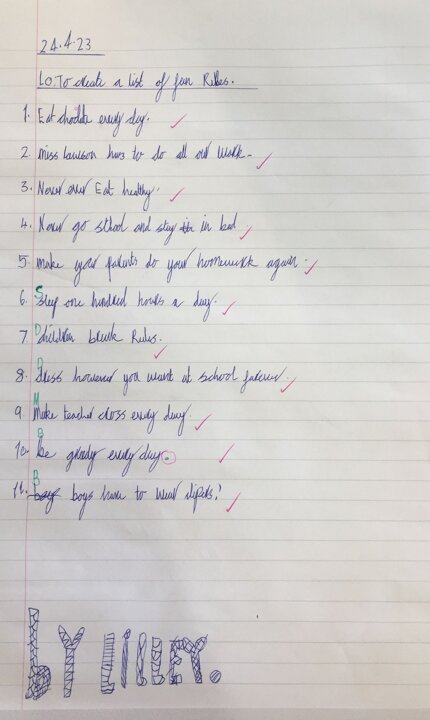 24.4.23
LO: To create a list of fun Rules.
1. Eat chocolate every day.
2. miss lawson has to do all our work.
3. Never ever Eat healthy.
4. Never go school and stay in bed
5. make your parents do your homework again.
6. Sleep one hundred hours a day.
7. Children break Rules.
8. Dress however you want at school forever.
9. Make teacher cross every day.
10. Be greedy every day.
11. boys have to wear
by